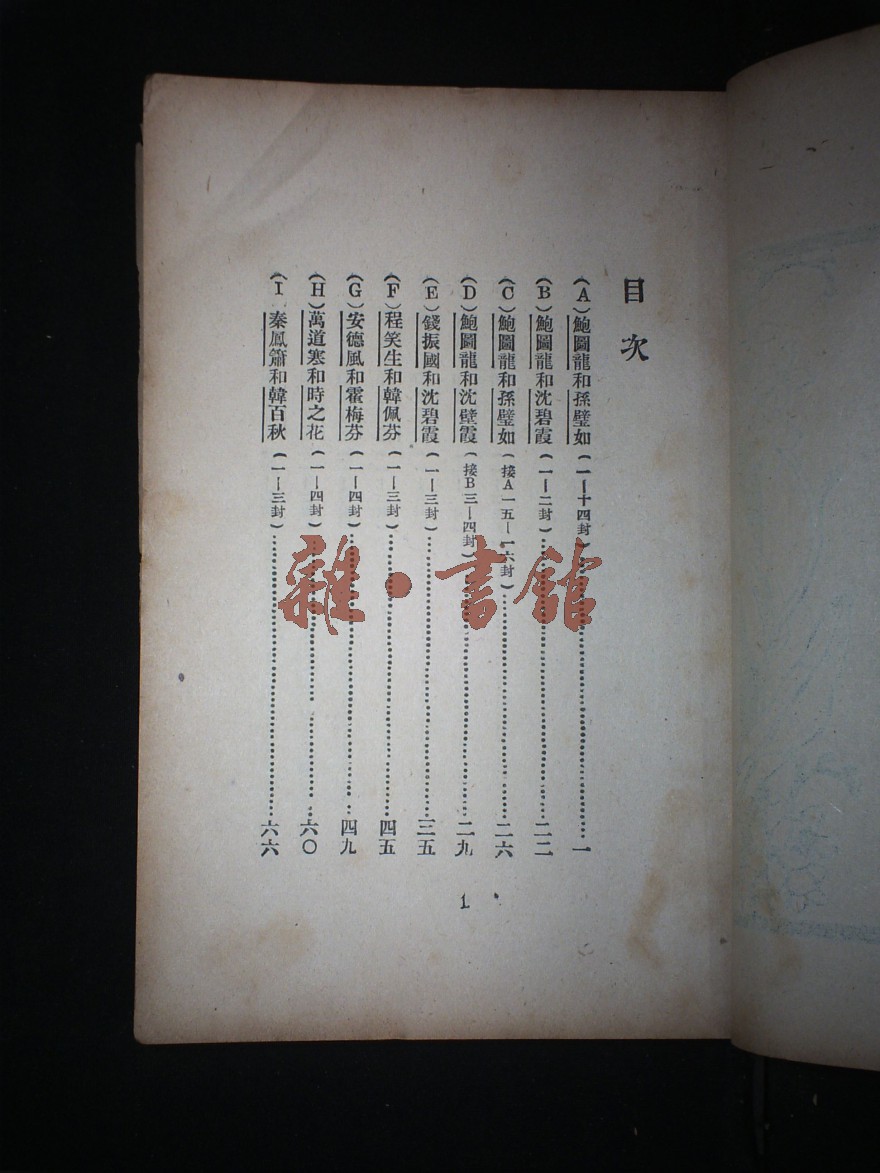 目次
(A)鮑圖龍和孫璧如(一—十四封)……一
(B)鮑圖龍和沈碧霞(一—二封)……二二
(C)鮑圖龍和孫璧如(接A一五—一六封)……二六
(D)鮑圖龍和沈壁霞(接B三—四封)……二九
(E)錢振國和沈碧霞(一—三封)……三五
(F)程笑生和韓佩芬(一—三封)……四五
(G)安德風和霍梅芬(一—四封)……四九
(H)萬道寒和時之花(一—四封)……六〇
(I 秦鳳簫和韓百秋(一—三封)……六六
1
雜·書館